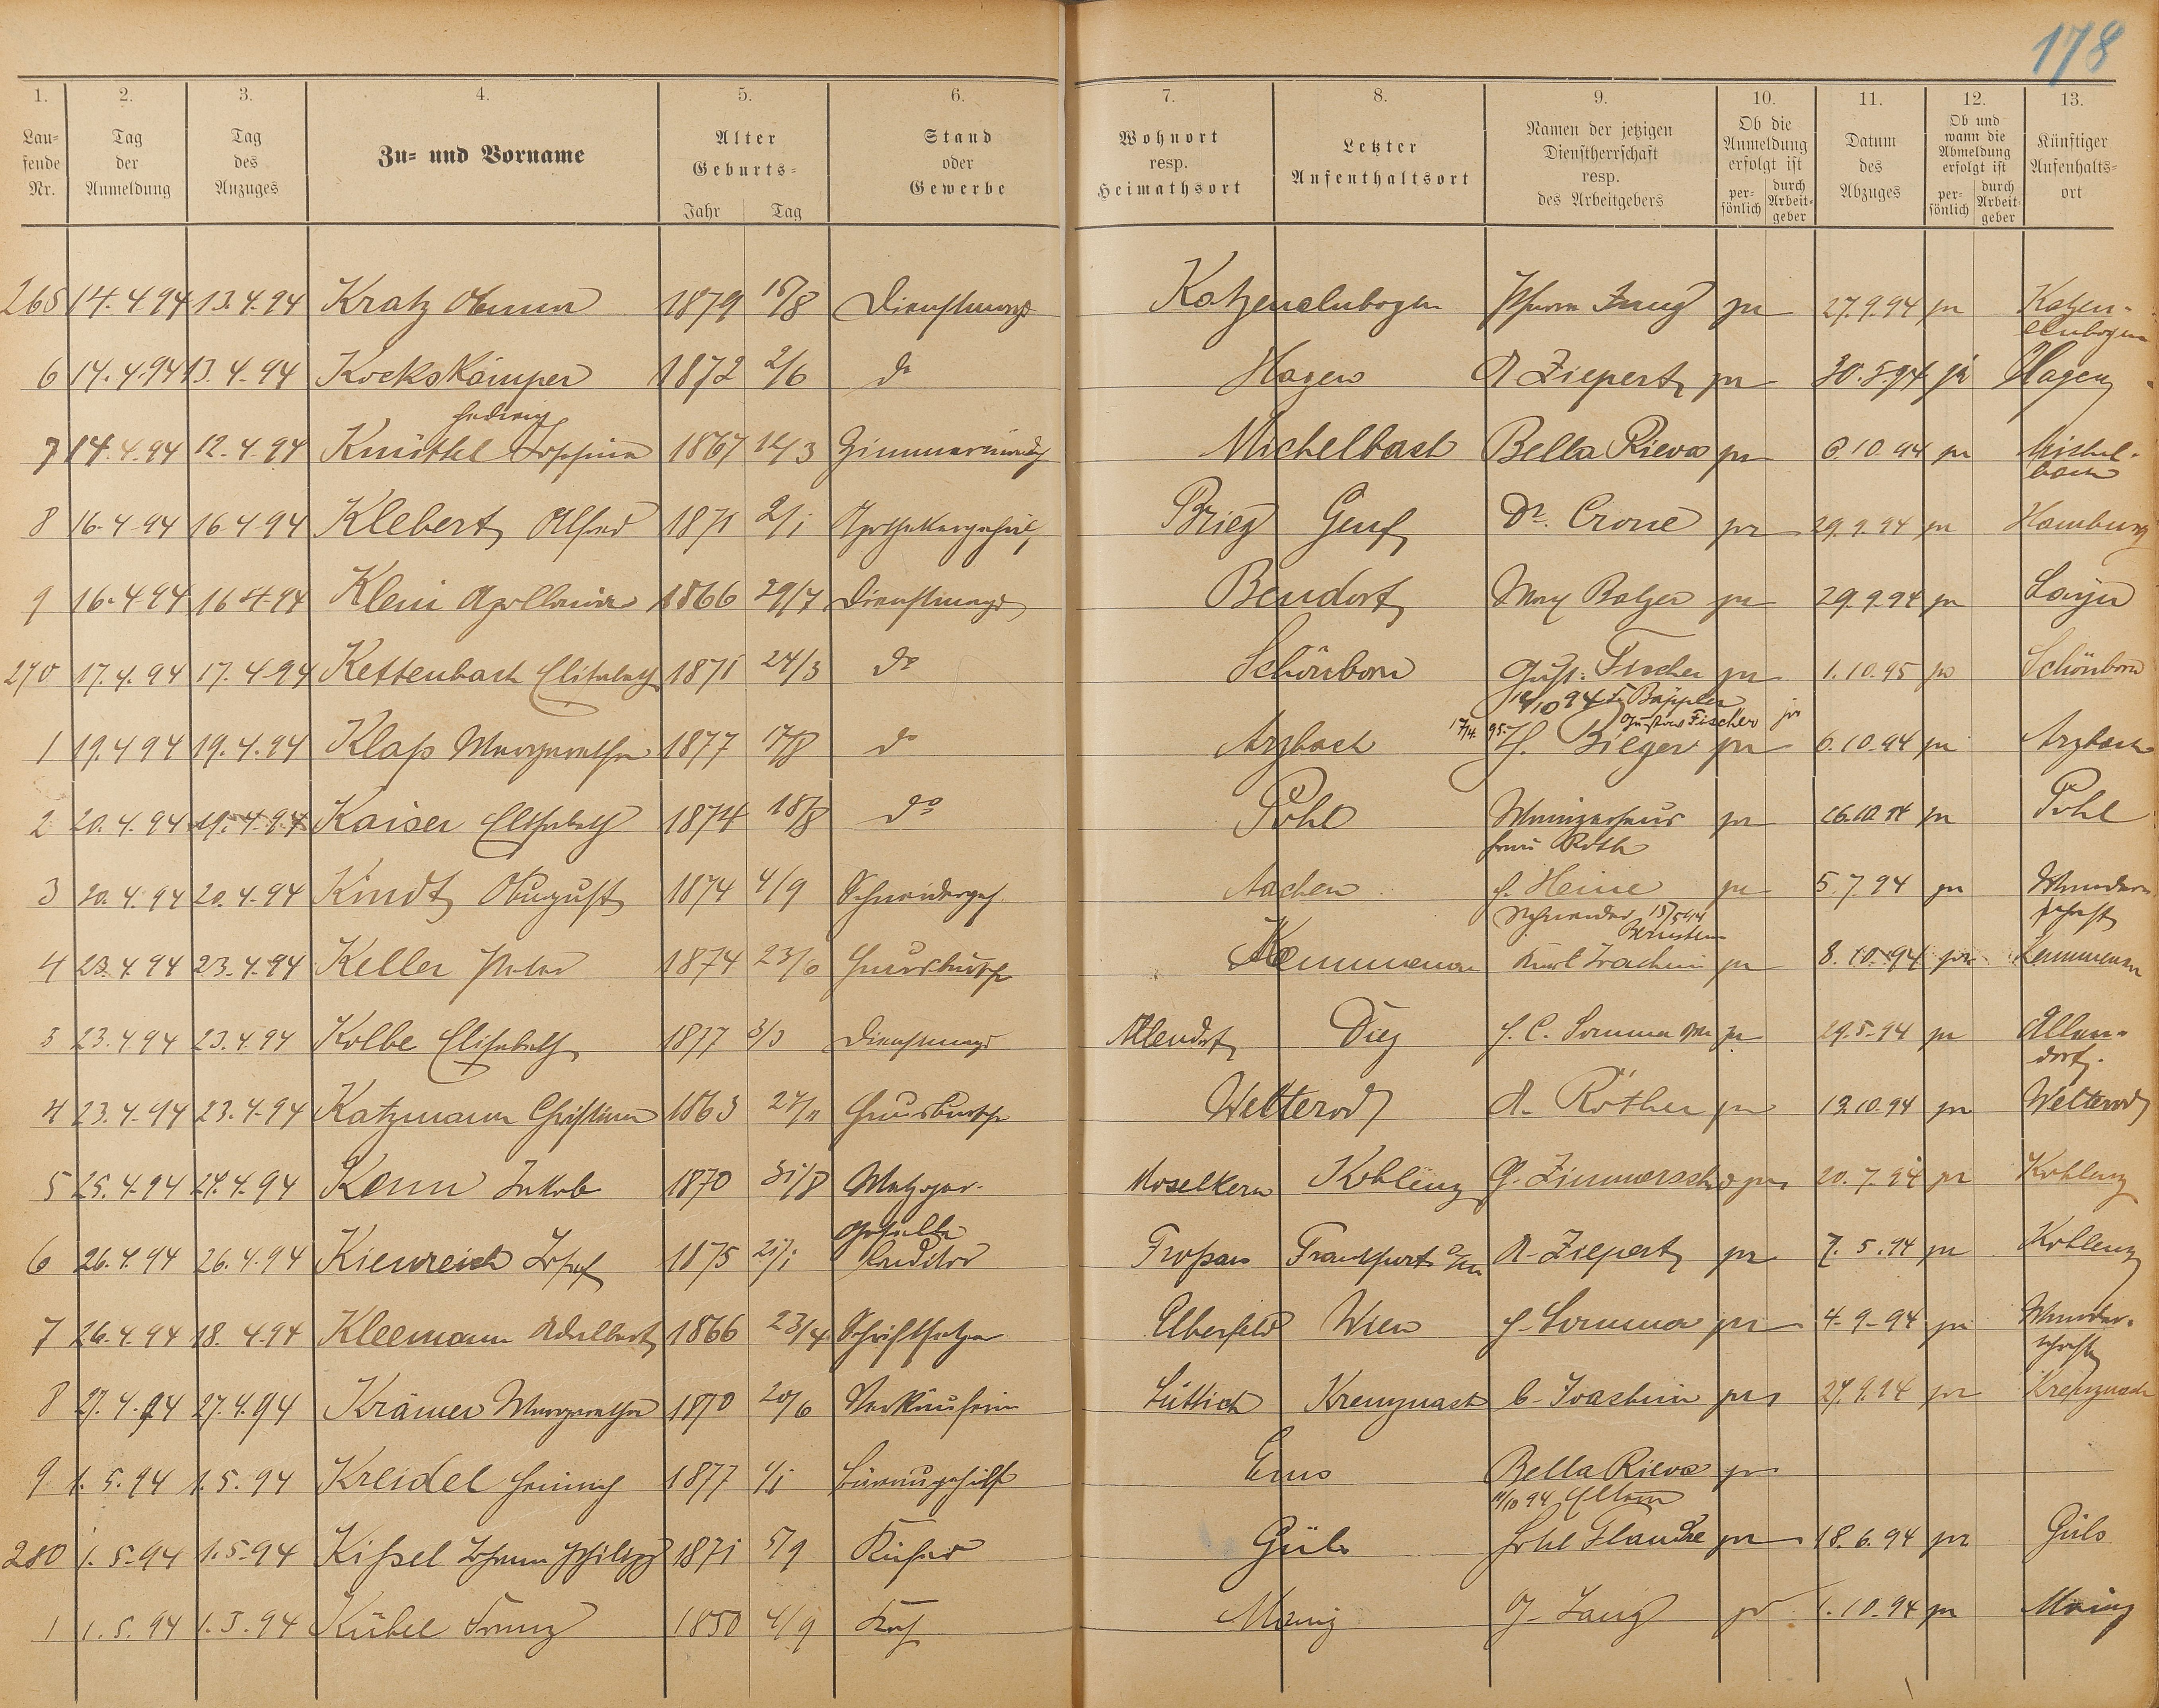 178
1. 2. 3. 4. 5. 6. 7. 8. 9. 10. 11. 12. 13.
Lau=fende Nr. Tag der Anmeldung Tag des Anzuges Zu= und Vorname Alter Geburts= Jahr Tag Stand oder Gewerbe Wohnort resp. Heimathsort Letzter Aufenthaltsort Namen der jetzigen Dienstherrschaft resp. des Arbeitgebers Ob die Anmeldung erfolgt ist per=sönlich durch Arbeit=geber Datum des Abzuges Ob und wann die Abmeldung erfolgt ist per=sönlich durch Arbeit=geber Künftiger Aufenthalts=ort
265 14.4.94 13.4.94 Kratz Anna 1879 15/8 Dienstmagd Katzenelnbogen Jung pr 27.9.94 pr Katzen-
elnbogen
6 14.4.94 13.4.94 Kockskämper 1872 2/6 do Hagen A Ziepert pr 30.5.94 pr Hagen
Hedwig
7 14.4.94 12.4.94 Knüttel Josefine 1867 12/3 Zimmermädch Michelbach Bella Rieva pr 6.10.94 pr Michel-
bach
8 16.4.94 16.4.94 Klebert Alfred 1871 2/1 Apothekergehilf Brieg Genf Dr. Crone pr 29.9.94 pr Hamburg
9 16.4.94 16.4.94 Klein Apollonia 1866 29/7 Dienstmagd Bendorf Max Balzer pr 29.9.94 pr Layen
270 17.4.94 17.4.94 Kettenbach Elisabeth 1871 24/3 do Schönborn Gust. Fischer pr 1.10.95 pr Schönborn
10/10 94 Bäppler
17/4. 95. Gustav Fischer pr
1 19.4.94 19.4.94 Klaß Margaretha 1877 17/8 do Arzbach H. Bieger pr 6.10.94 pr Arzbach
2 20.4.94 19.4.94 Kaiser Elisabeth 1874 18/8 do Pohl Mainzerhaus pr 16.10.94 pr Pohl
Frau Roth
3 20.4.94 20.4.94 Kindt August 1874 4/9 Schneiderges. Aachen H. Heine pr 5.7.94 pr Wander-
schaft
Schneider 15/5 94
Bernstein
4 23.4.94 23.4.94 Keller Peter 1874 23/6 Hausbursche Kemmenau Karl Joachim pr 8.10.94 pr Kemmenau
3 23.4.94 23.4.94 Kolbe Elisabeth 1877 3/3 Dienstmagd Allendorf Diez H. C. Sommer pr 29.5.94 pr Allen-
dorf.
4 23.4.94 23.4.94 Katzmann Christian 1863 27/11 Hausbursche Welterod A. Röther pr 13.10.94 pr Welterod
5 25.4.94 24.4.94 Kenn Jakob 1870 31/8 Metzger- Moselkern Koblenz G. Zimmerschd pr 20.7.94 pr Koblenz
geselle
6 26.4.94 26.4.94 Kienreich Josef 1875 21/1 Conditor Troppau Frankfurt a/m A. Ziepert pr 7.5.94 pr Koblenz
7 26.4.94 18.4.94 Kleemann Adalbert 1866 23/4 Schriftsetzer Elberfeld Wien H. Sommer pr 4.9.94 pr Wander-
schaft
8 27.4.94 27.4.94 Krämer Margaretha 1870 20/6 Verkäuferin Lüttich Kreuznach C. Joachim pr 27.9.94 pr Kreuznach
9 1.5.94 1.5.94 Kreidel Heinrich 1877 4/1 Büreaugehilfe Ems Bella Rieva pr
11/10 94 Eltern
280 1.5.94 1.5.94 Kißel Johann Philipp 1871 5/9 Küfer Güls Hotel Flandre pr 18.6.94 pr Güls
1 1.5.94 1.5.94 Kübel Franz 1850 4/9 Koch Mainz J. Lang pr 1.10.94 pr Mainz